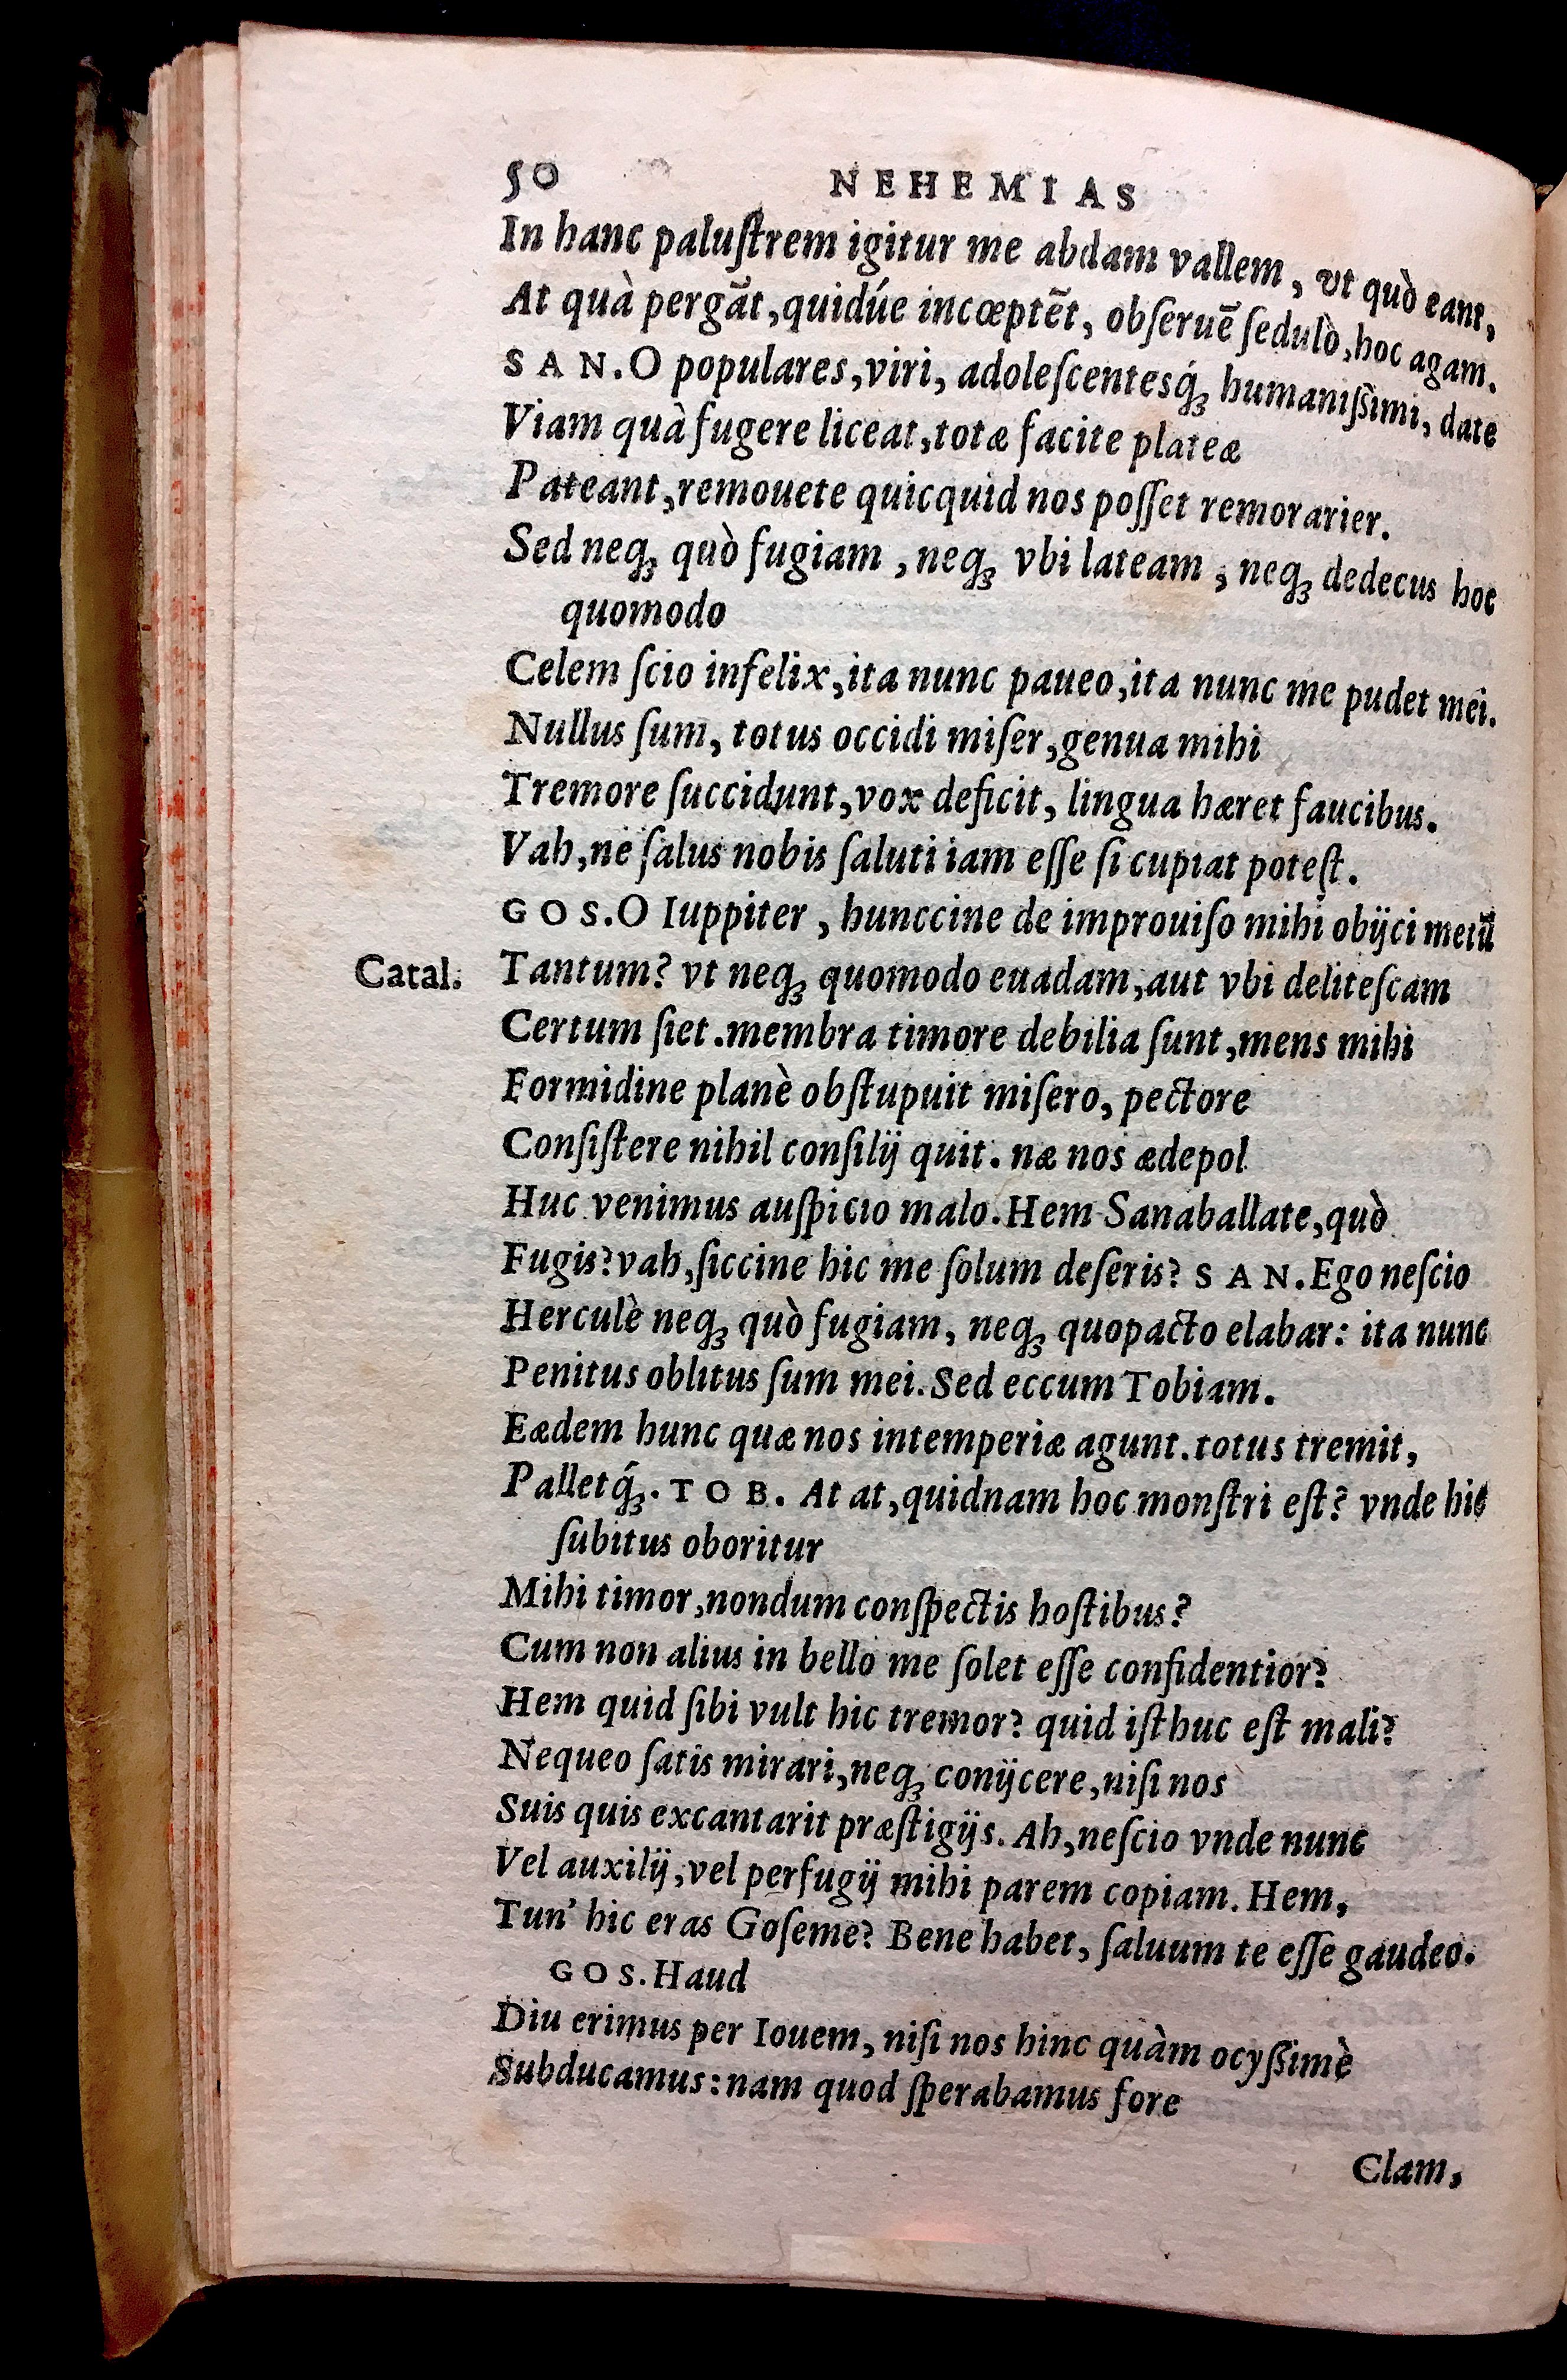 50 NEHEMIAS
In hanc paluſtrem igitur me abdam vallem, vt quò eant,
At quà pergāt, quidúe incœptēt, obſeruē ſedulò, hoc agam.
SAN. O populares, viri, adoleſcentesq́ꝫ humaniſſimi, date
Viam quà fugere liceat, totæ facite plateæ
Pateant, remouete quicquid nos poſſet remorarier.
Sed neqꝫ quò fugiam, neqꝫ vbi lateam, neqꝫ dedecus hoc
quomodo
Celem ſcio infelix, ita nunc paueo, ita nunc me pudet mei.
Nullus ſum, totus occidi miſer, genua mihi
Tremore ſuccidunt, vox deficit, lingua hæret faucibus.
Vah, ne ſalus nobis ſaluti iam eſſe ſi cupiat poteſt.
GOS. O Iuppiter, hunccine de improuiſo mihi obijci metū
Catal. Tantum? vt neqꝫ quomodo euadam, aut vbi deliteſcam
Certum ſiet. membra timore debilia ſunt, mens mihi
Formidine planè obſtupuit miſero, pectore
Conſiſtere nihil conſilij quit. næ nos ædepol
Huc venimus auſpicio malo. Hem Sanaballate, quò
Fugis? vah, ſiccine hic me ſolum deſeris? SAN. Ego neſcio
Herculè neqꝫ quò fugiam, neqꝫ quopacto elabar: ita nunc
Penitus oblitus ſum mei. Sed eccum Tobiam.
Eædem hunc quæ nos intemperiæ agunt. totus tremit,
Palletq́ꝫ. TOB. At at, quidnam hoc monſtri eſt? vnde hic
ſubitus oboritur
Mihi timor, nondum conſpectis hoſtibus?
Cum non alius in bello me ſolet eſſe confidentior?
Hem quid ſibi vult hic tremor? quid iſthuc eſt mali?
Nequeo ſatis mirari, neqꝫ conijcere, niſi nos
Suis quis excantarit præſtigijs. Ah, neſcio vnde nunc
Vel auxilij, vel perfugij mihi parem copiam. Hem,
Tun' hic eras Goſeme? Bene habet, ſaluum te eſſe gaudeo.
GOS. Haud
Diu erimus per Iouem, niſi nos hinc quàm ocyſſimè
Subducamus: nam quod ſperabamus fore
Clam,